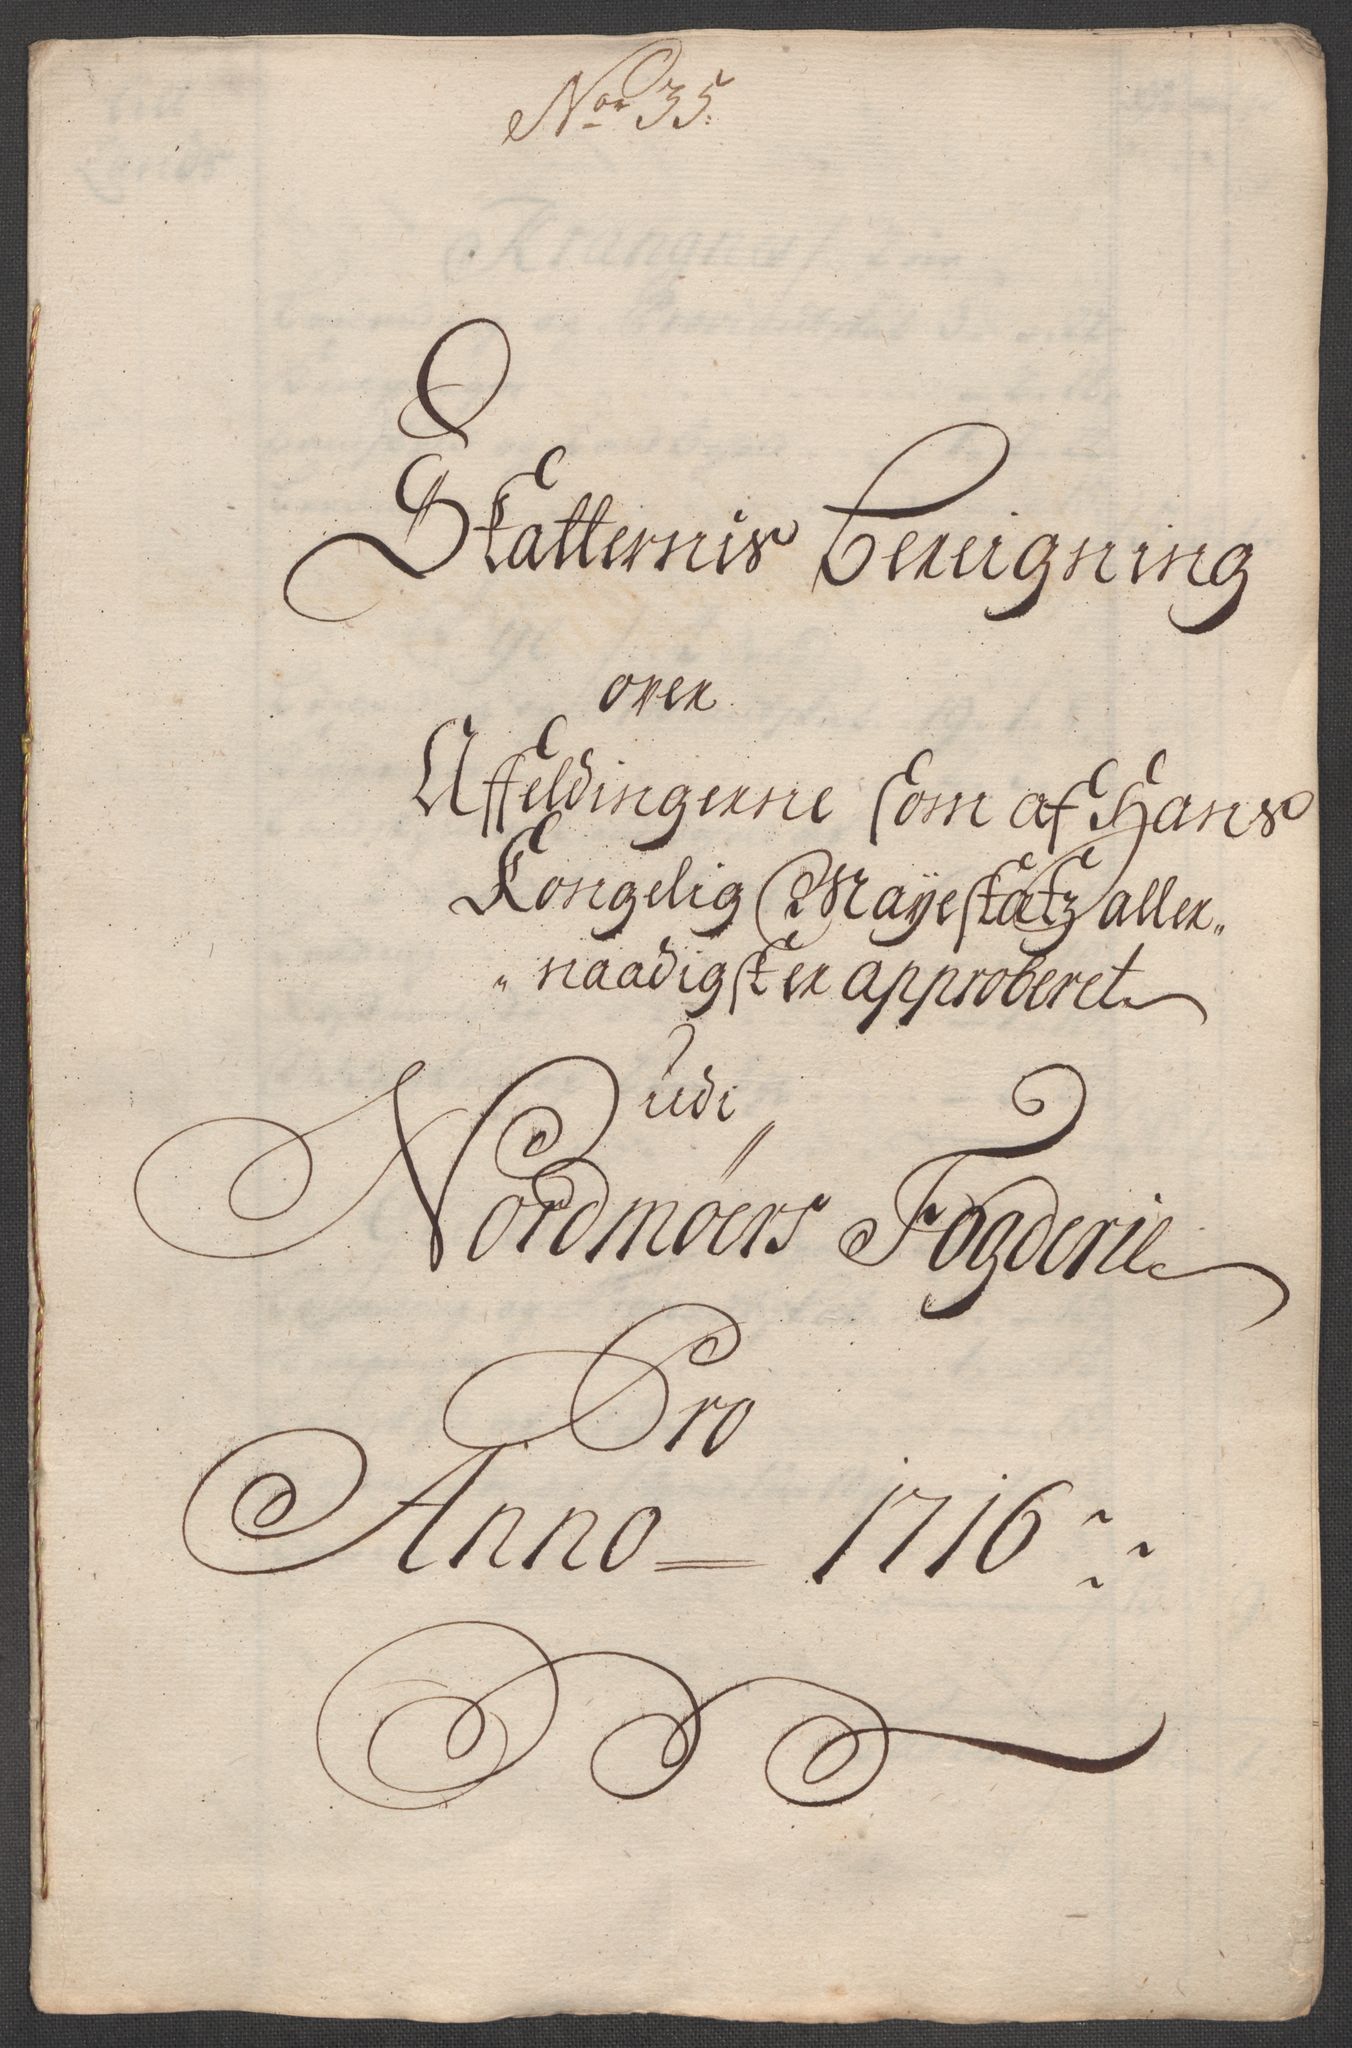 No 35.
Skatternis bereigning
over
Affeldingerne som af Hans
Kongelig Mayestætz aller„
„naadigst er approberet
udi
Nordmøers Fogderie
Pro
Anno 1716